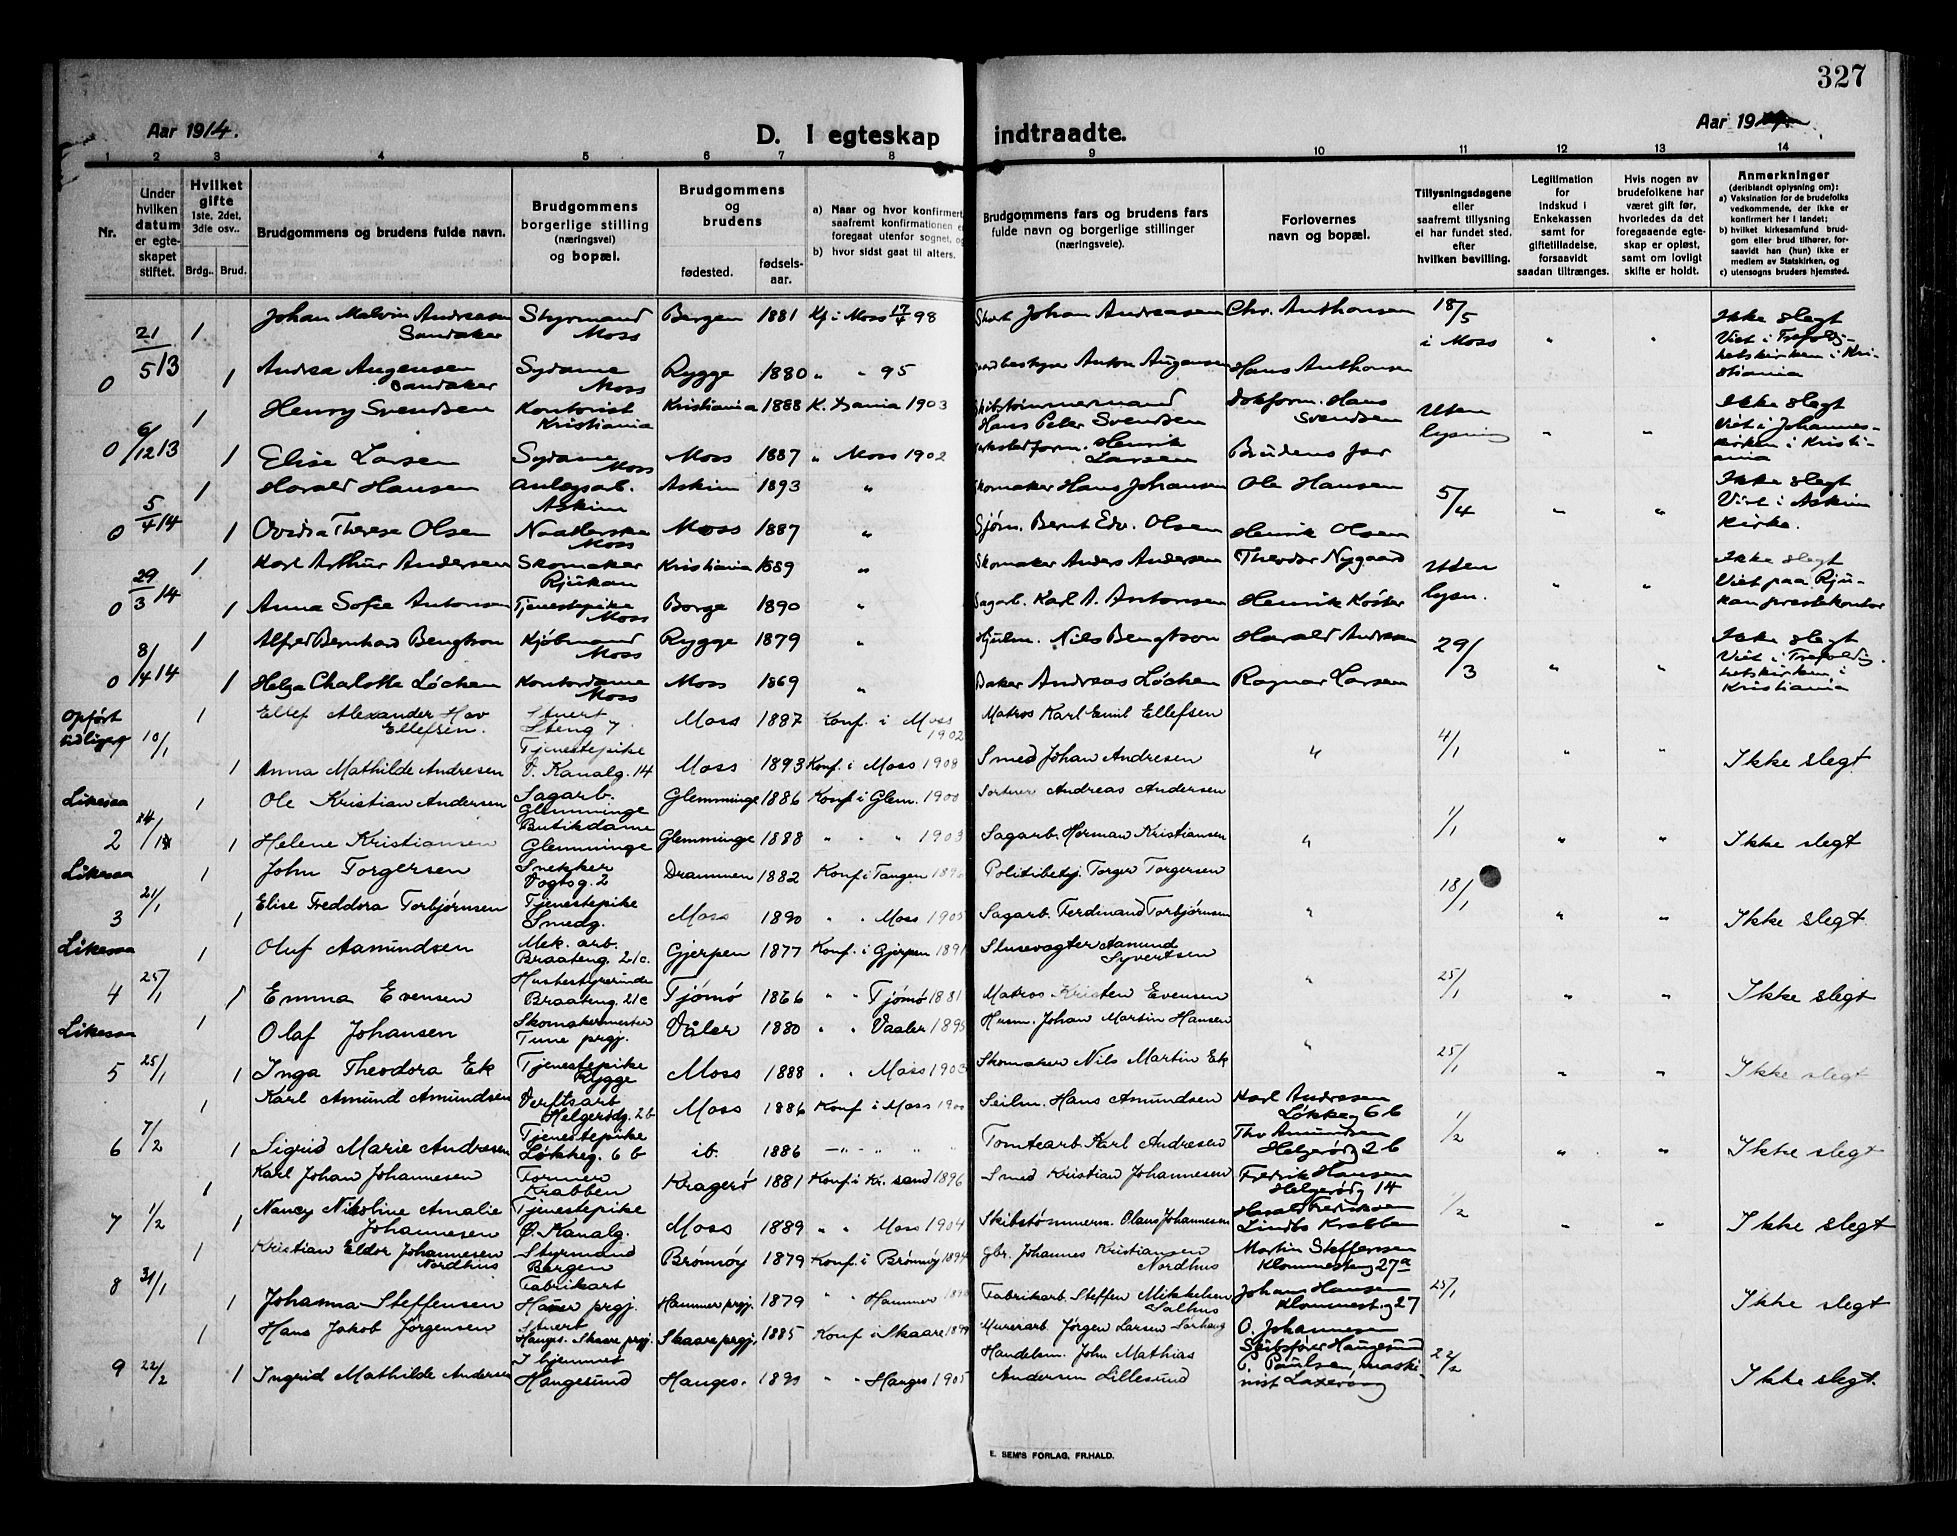 327
Aar 1914.
D. I egteskap indtraadte.
Aar 19
1 2 3 4 5 6 7 8 9 10 11 12 13 14
Nr.
Under hvilken datum er egteskapet stiftet.
Hvilket gifte 1ste, 2det, 3dje osv..
Brdg.. Brud.
Brudgommens og brudens fulde navn.
Brudgommens borgerlige stilling (næringsvei) og bopæl.
Brudgommens og brudens
fødested.
fødsels-aar.
a) Naar og hvor konfirmert, saafremt konfirmationen er foregaat utenfor sognet, og
b) hvor sidst gaat til alters.
Brudgommens fars og brudens fars fulde navn og borgerlige stillinger (næringsveie).
Forlovernes navn og bopæl.
Tillysningsdagene eller saafremt tillysning ei har fundet sted, efter hvilken bevilling.
Legitimation for indskud i Enkekassen samt for giftetilladelse, forsaavidt saadan tiltrænges.
Hvis nogen av brudefolkene har været gift før, hvorledes da det foregaaende egteskap er opløst, samt om lovligt skifte er holdt.
Anmerkninger (deriblandt oplysning om):
a) Vaksination for de brudefolks vedkommende, der ikke er konfirmert her i landet;
b) hvilket kirkesamfund brudgom eller brud tilhører, forsaavidt han (hun) ikke er medlem av Statskirken, og
c) utensogns bruders hjemsted.
21/5 13 1 Johan Malvin Andreasen Sandaker Styrmand Moss Bergen 1881 Kf i Moss 17/4 98 Johan Andreasen Chr. Anthonsen 18/5 i Moss " " Ikke slegt Viet i Trefoldighetskirken i Kristiania
0 1 Andrea Augensen Sandaker Sydame Moss Rygge 1880 " " 95 Anton Augensen Hans Anthonsen
6/12 13 1 Henry Svendsen Kontorist Kristiania Kristiania 1888 K. Xania 1903 Skibstømmermand Hans Peter Svendsen Dokform. Hans Svendsen Uten lysning " " Ikke slegt Viet i Johanneskirken i Kristiania
0 1 Elise Larsen Sydame Moss Moss 1887 " Moss 1902 Verkstedform. Henrik Larsen Brudens far
5/4 14 1 Harald Hansen Anlægsarb. Askim Askim 1893 " Skomaker Hans Johansen Ole Hansen 5/4 " " Ikke slegt Viet i Askim Kirke.
0 1 Ovidia Therese Olsen Naatlerske Moss Moss 1887 " Sjøm. Bernt Edv. Olsen Henrik Olsen
29/3 14 1 Karl Arthur Andersen Skomaker Rjukan Kristiania 1889 " Skomaker Anders Andersen Theodor Nygaard Uten lysn. " " Ikke slegt Viet paa Rjukan prestekontor
0 1 Anna Sofie Antonsen Tjenestepike Moss Borge 1890 " Sagarb. Karl A. Antonsen Henrik Köster
8/4 14 1 Alfred Bernhard Bengtson Kjøbmand Moss Rygge 1879 " Hjulm. Nils Bengtson Harald Andresen 29/3 " " Ikke slegt Viet i Trefoldighetskirken i Kristiania
0 1 Helga Charlotte Løchen Kontordame Moss Moss 1869 " Baker Andreas Løchen Ragnar Larsen
Opført tidligere 10/1 1 Ellef Alexander Hov Ellefsen. Stuert Steng 7 Moss 1887 Konf. i Moss 1902 Matros Karl Emil Ellefsen 4/1 " " Ikke slegt
1 Anna Mathilde Andresen Tjenestepike V. Kanalg. 14 Moss 1893 Konf. i Moss 1908 Smed Johan Andresen "
Likesaa 1 Ole Kristian Andersen Sagarb. Glemminge Glemminge 1886 Konf i Glem. 1900 Sorterer Andreas Andersen 1/1 " " Ikke slegt
2 1 Helene Kristiansen Butikdame Glemminge Glemminge 1888 " " " 1903 Sagarb. Herman Kristiansen "
Likesaa 21/1 1 John Torgersen Snekker Vogtsg. 2 Drammen 1882 Konf i Tangen Politibetj. Torger Torgersen 18/1 " " Ikke slegt
3 1 Elise Freddora Torbjørnsen Tjenestepike Smedg. Moss 1890 " " Moss 1905 Sagarb. Ferdinand Torbjørnsen "
Likesaa 25/1 1 Oluf Aamundsen Mek. arb. Braateng. 21c. Gjerpen 1877 Konf. i Gjerpen 1891 Slusevogter Aamund Syvertsen 25/1 " " Ikke slegt
4 1 Emma Evensen Husbestyrerinde Braateng. 21c Tjømø 1866 " " Tjømø 1881 Matros Kristen Evensen "
Likesaa 25/1 1 Olaf Johansen Skomakermester Tune prgj. Våler 1880 " " Vaaler 1895 Husm. Johan Martin Hansen 25/1 " " Ikke slegt
5 1 Inga Theodora Ek Tjenestepike Rygge Moss 1888 " " Moss 1903 Skomaker Nils Martin Ek "
7/2 1 Karl Amund Amundsen Verftsarb Helgerødg. 2b Moss 1886 Konf i Moss Seilm. Hans Amundsen Karl Andresen Løkkeg 6b 1/2 " " Ikke slegt
6 1 Sigrid Marie Andresen Tjenestepike Løkkeg. 6 b ib. 1886 " " " " Tomtearb Karl Andresen Thv Amundsen Helgerødg 2b
1/2 1 Karl Johan Johannesen Former Krabben Kragerø 1881 Konf i Kr. sand 1896 Smed Kristian Johannesen Fredrik Hansen Helgerødg 14 1/2 " " Ikke slegt
7 1 Nancy Nikoline Amalie Johannesen Tjenestepike Ø. Kanalg. Moss 1889 " " Moss 1904 Skibstømmerm. Olaus Johannesen Krabben
31/1 1 Kristian Eldor Johannesen Nordhus Styrmand Bergen Brønnøy 1879 Konf. i Brønnøy 1894 Gbr. Johannes Kristiansen Nordhus Martin Steffensen 27a 25/1 Ikke slegt
8 1 Johanna Steffensen Fabrikarb Hamer prgj. Hammer prgj. 1879 " " Hammer Fabrikarb. Steffen Mikkelsen Salhus Johan Hansen 27
22/2 1 Hans Jakob Jørgensen Stuert Hauges. Skaare prgj. Skaare prgj. 1885 Konf i Skaare Murerarb. Jørgen Larsen Sørhaug O. Johannesen Skibsfører Haugesund 22/2 Ikke slegt.
9 1 Ingrid Mathilde Andersen I hjemmet Haugesund Hauges. " " Hauges 1905 Handelsm. John Mathias Andersen Lillesund P. Paulsen, maskinist
E. SEM'S FORLAG, FR.HALD.